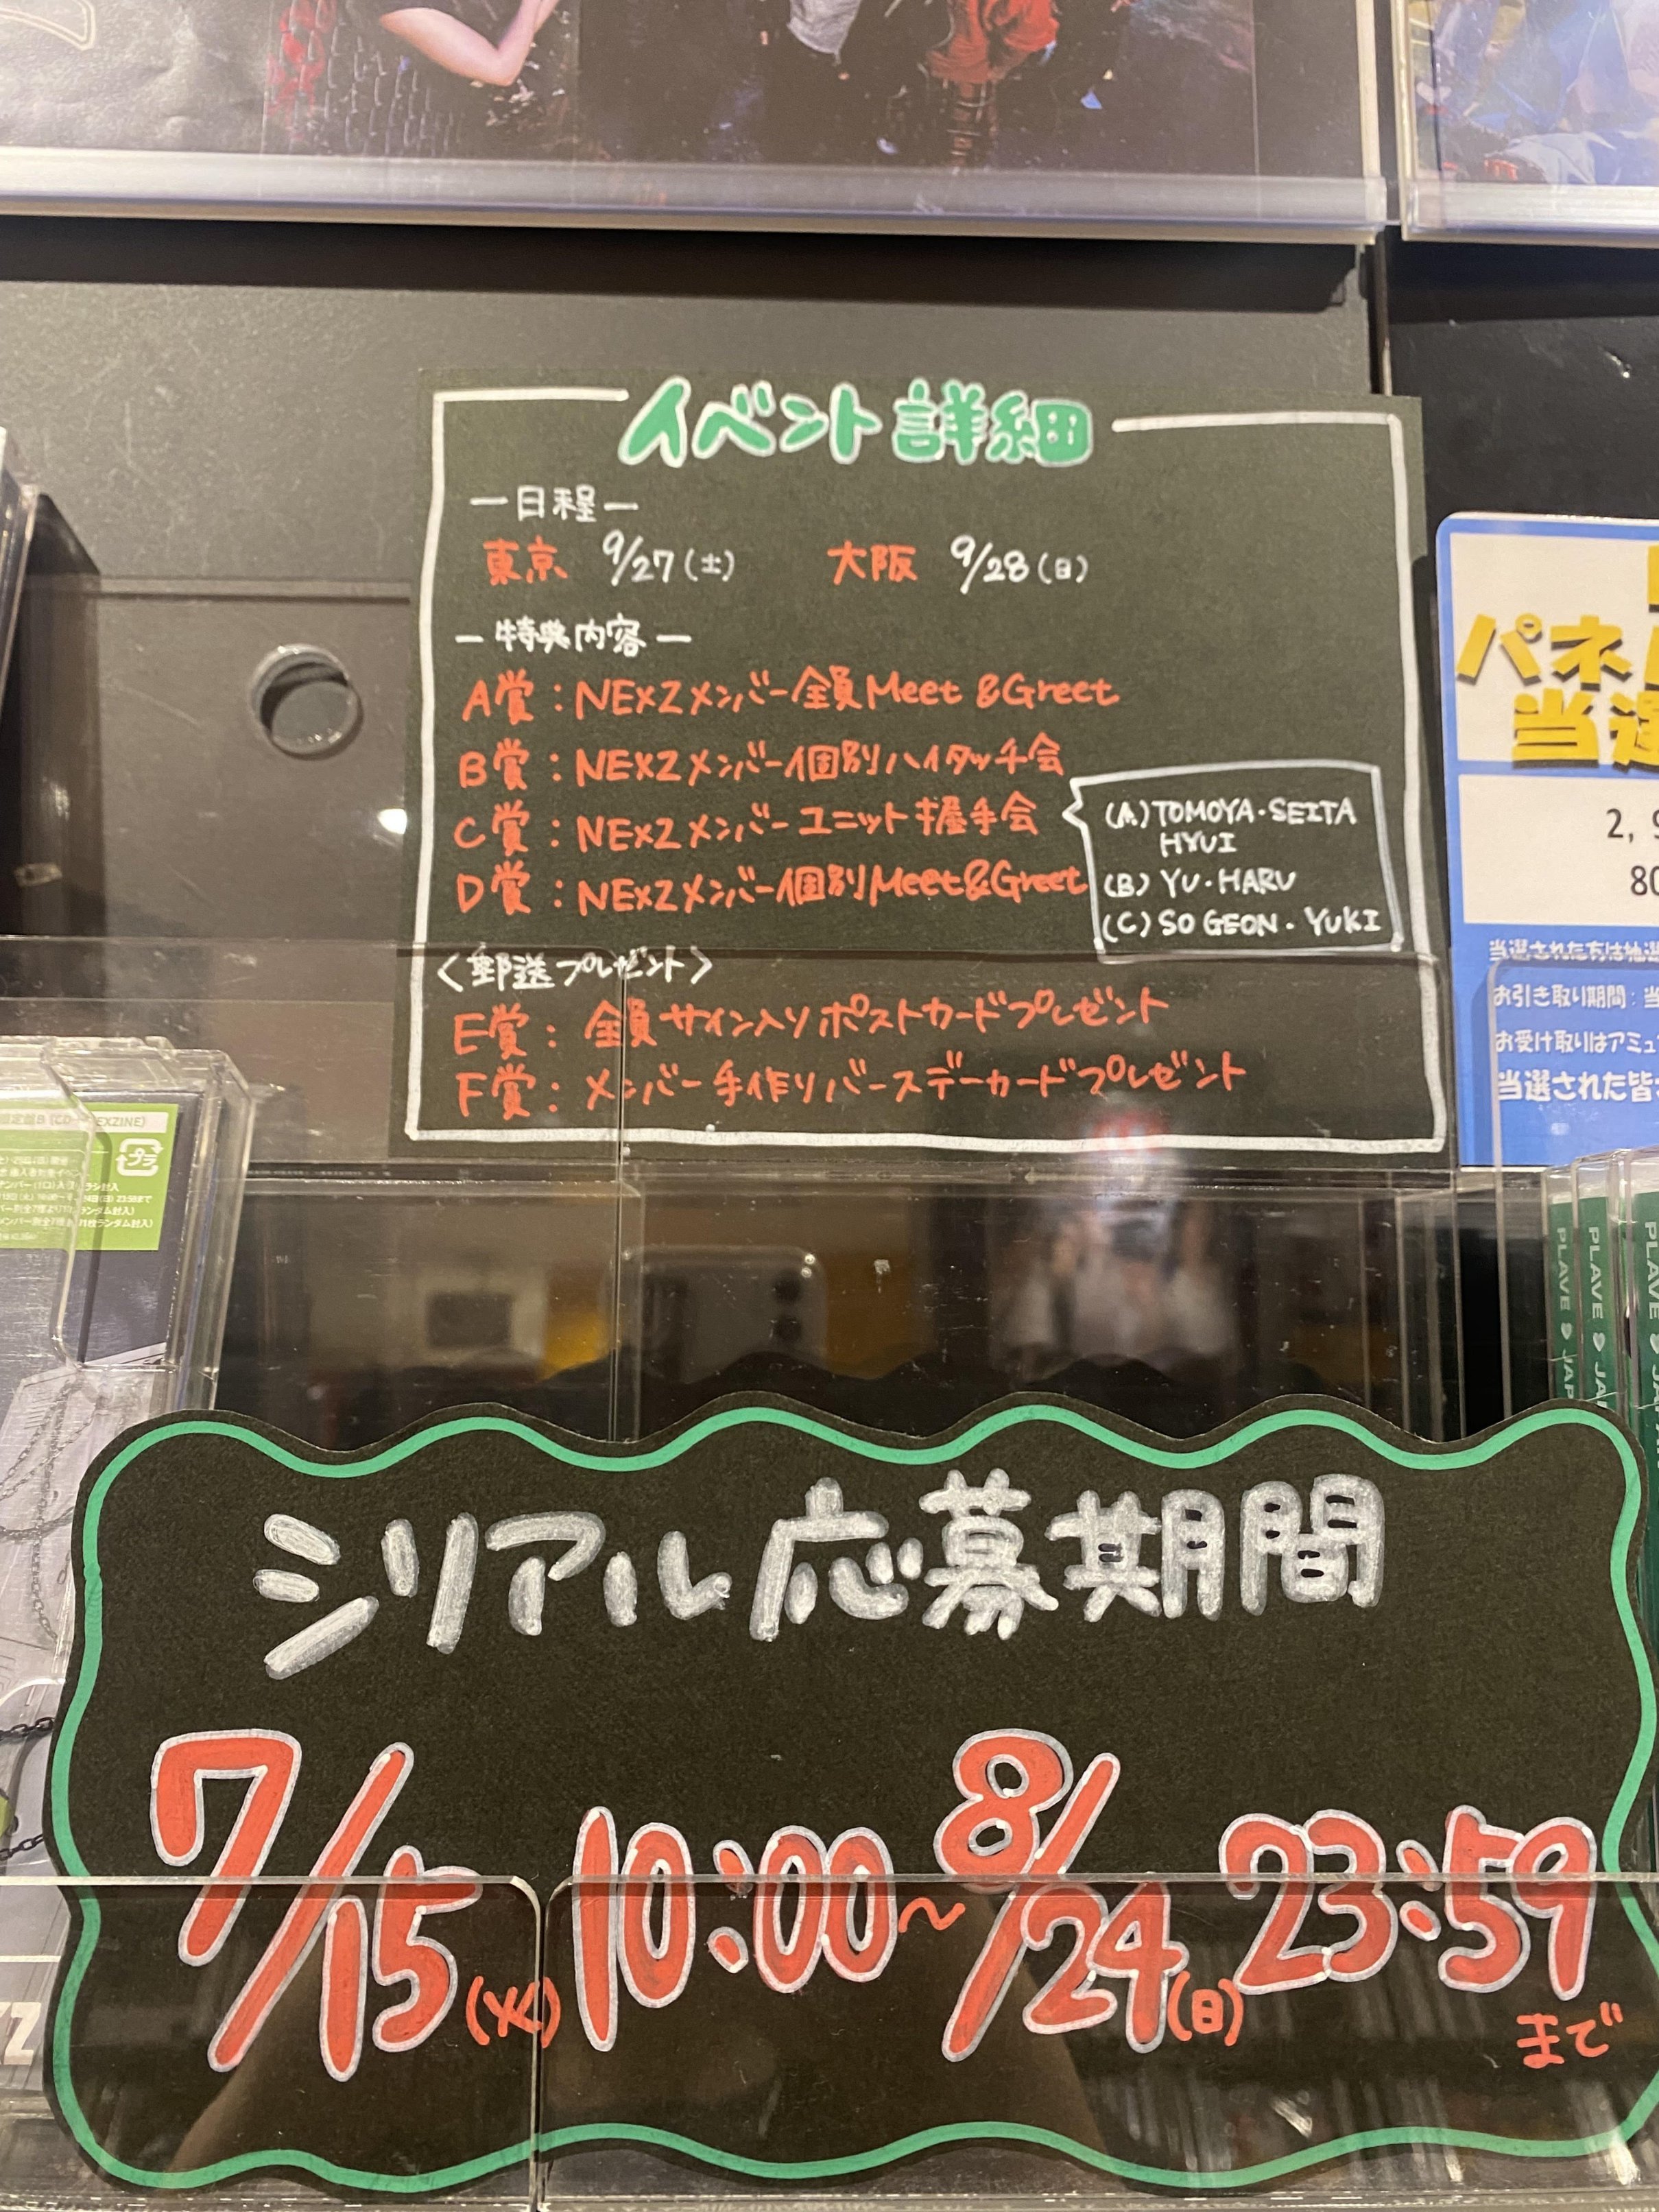 イベント詳細
ー日程ー
東京 9/27(土) 大阪 9/28(日)
ー特典内容ー
A賞：NEXZメンバー全員Meet&Greet
B賞：NEXZメンバー個別ハイタッチ会
C賞：NEXZメンバーユニット握手会
D賞：NEXZメンバー個別Meet&Greet
(A)TOMOYA・SEITA
HYUI
(B)YU・HARU
(C)SO GEON・YUKI
〈郵送プレゼント〉
E賞：全員サイン入りポストカードプレゼント
F賞：メンバー手作りバースデーカードプレゼント
パネ
当選
2, 9
80
当選された方は抽選
お引き取り期間：当
お受け取りはアミュ
当選された皆
プラ
PLAVE ♥ JAP
PLAVE ♥ JA
PLAVE
シリアル応募期間
7/15(火)10:00~8/24(日)23:59
まで